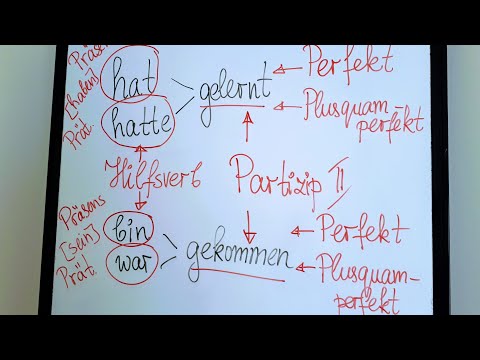 Präsens
[haben]
Prät.
hat
hatte
gelernt
Perfekt
Plusquam-
perfekt
Hilfsverb
Partizip II
Präsens
[sein]
Prät.
bin
war
gekommen
Perfekt
Plusquam-
perfekt